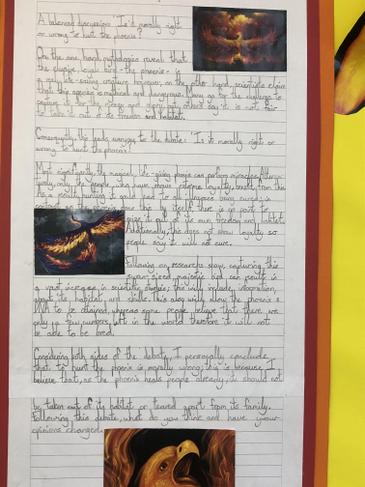 A balanced discussion: 'Is it morally right
or wrong to hunt the phoenix?'
On the one hand, mythologies reveal that
the elusive, loyal bird the phoenix is
a only life-giving creature, however, on the other hand, scientists claim
that this species is mythical and dangerous. Many go for the challenge to
capture it for the and glory yet others say it is not fair
to take it out of its freedom and habitat.
Consequently, this leads to the debate: 'Is it morally right or
wrong to hunt the phoenix?'
Most significantly, the magical, life-giving phoenix can perform miracles.
only the people who have shown extreme loyalty, benefit from this
As a result, hunting it could lead to all illnesses being cured; in
contrast to the previous one this by itself there is no point to
give it out of its own freedom and habitat.
Additionally, this does not show loyalty so
people say it will not cure.
Following on, researchers say, capturing this
majestic bird can result in
a vast increase in scientific studies; this will include, information
about its habitat, and skills. This also will allow the phoenix's
DNA to be obtained, whereas some people believe that there are
only a few numbers left in the world therefore it will not
be able to be bred.
Considering both sides of the debate, I personally conclude
that to hunt the phoenix is morally wrong; this is because I
believe that, as the phoenix heals people already, it should not
be taken out of its habitat or teared apart from its family.
Following this debate, what do you think and have your
opinions changed.